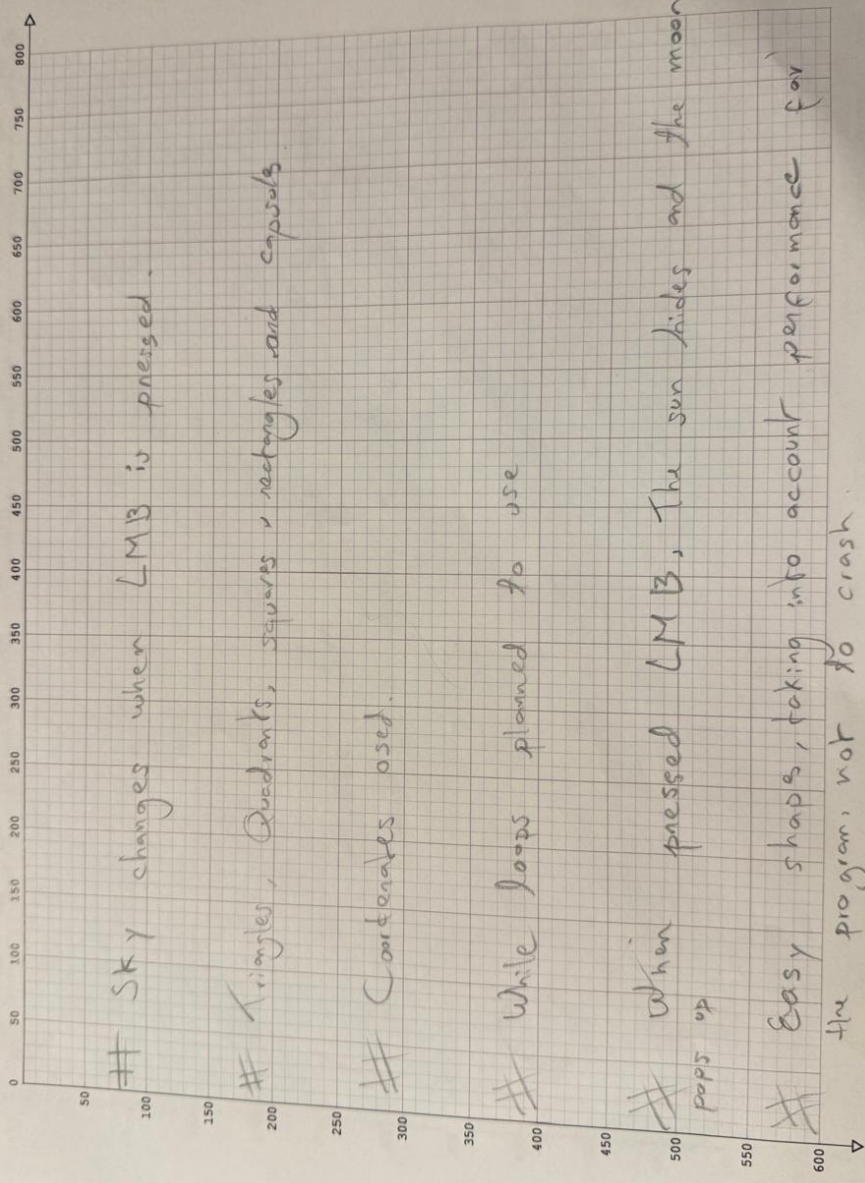 0 50 100 150 200 250 300 350 400 450 500 550 600 650 700 750 800
50
100
150
200
250
300
350
400
450
500
550
600
# Sky changes when LMB is pressed.
# Triangles, Quadrants, squares, rectangles and capsule.
# Coordenates used.
# While loops planned to use
# When pressed LMB, The sun hides and the moon
pops up
# Easy shaps, taking into account performance for
the program, not to crash.